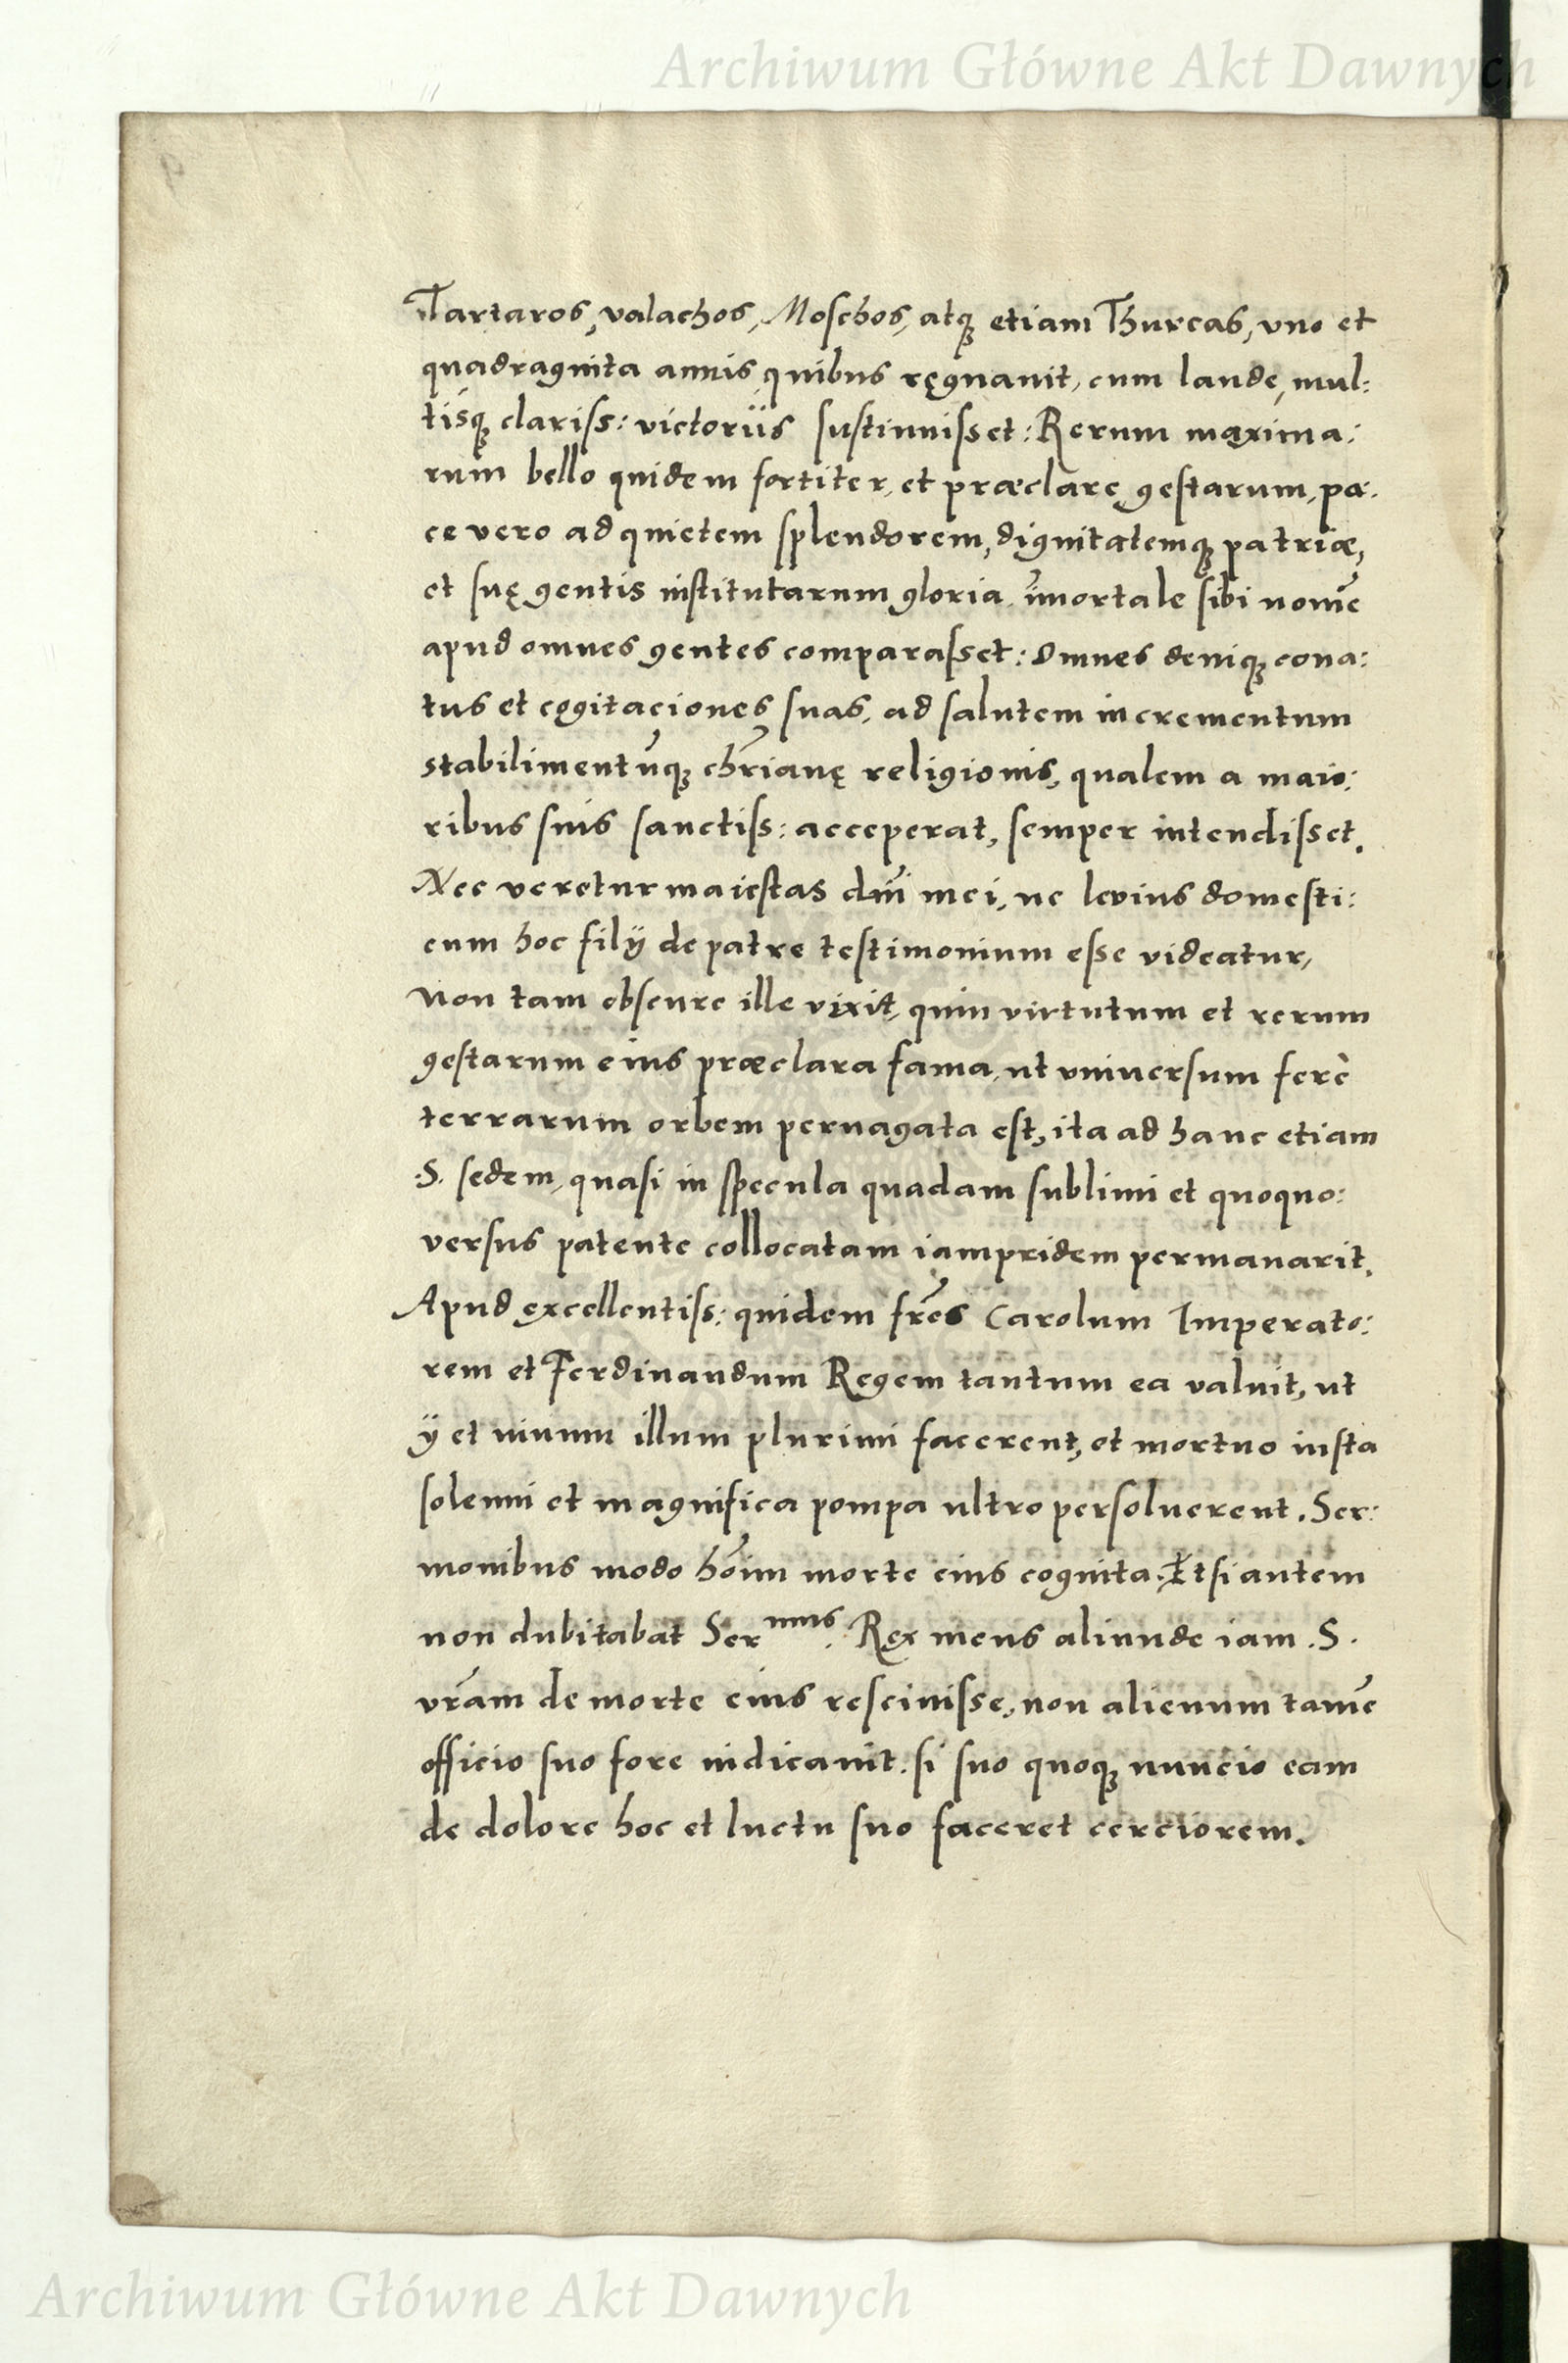 Archiwum Główne Akt Dawnych
Tartaros, valachos, Moschos, atq3 etiam Thurcas, vno et
quadraginta annis quibus regnauit, cum laude, mul:
tisq3 clariss: victoriis sustinuisset: Rerum maxima:
rum bello quidem fortiter, et præclare gestarum, pa:
ce vero ad quietem splendorem, dignitatemq3 patriæ,
et suę gentis institutarum gloria, im̄ortale sibi nomē
apud omnes gentes comparasset: Omnes deniq3 cona:
tus et cogitaciones suas, ad salutem incrementum
stabilimentūq3 chr̄ianę religionis, qualem a maio:
ribus suis sanctiss: acceperat, semper intendisset.
Nec veretur maiestas dn̄i mei, ne levius domesti:
cum hoc filÿ de patre testimonium esse videatur,
Non tam obscure ille vixit, quin virtutum et rerum
gestarum eius præclara fama, ut vniuersum ferè
terrarum orbem peruagata est, ita ad hanc etiam
.S. sedem, quasi in specula quadam sublimi et quoquo:
versus patente collocatam iampridem permanarit.
Apud excellentiss: quidem fr̄es Carolum Imperato:
rem et Ferdinandum Regem tantum ea valuit, ut
ÿ et uiuum illum plurimi facerent, et mortuo iusta
solenni et magnifica pompa ultro persoluerent. Ser:
monibus modo hōim morte eius cognita. Etsi autem
non dubitabat Ser^mus. Rex meus aliunde iam .S.
vr̄am de morte eius resciuisse, non alienum tamē
officio suo fore iudicauit. si suo quoq3 nuncio eam
de dolore hoc et luctu suo faceret cerciorem.
Archiwum Główne Akt Dawnych